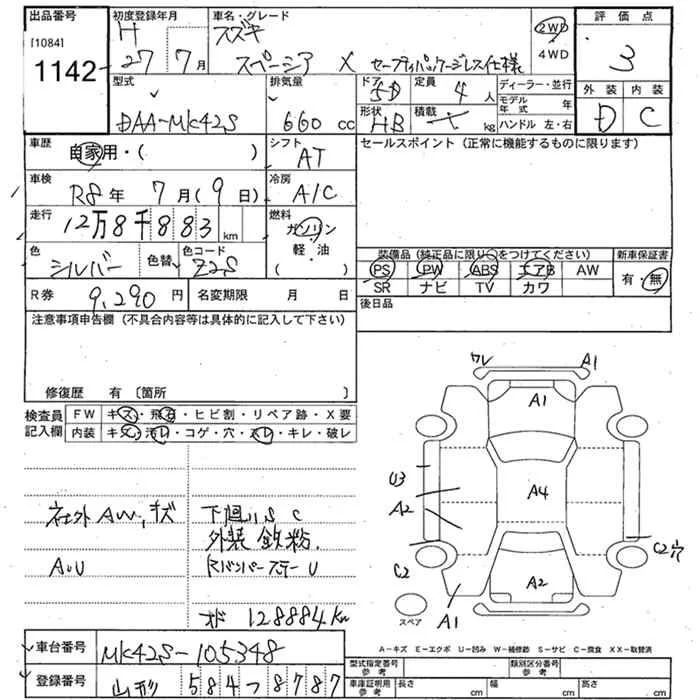 出品番号
[1084]
1142
初度登録年月
H
27年 7月
車名・グレード
スズキ
スペーシア X セーフティパッケージレス仕様
2WD
4WD
評価点
3
外装 内装
D C
型式
DAA-MK42S
排気量
660 cc
ドア 5D
形状 HB
定員 4人
積載 kg
ディーラー・並行
モデル年式 年
ハンドル 左・右
車歴
自家用・( )
シフト
AT
セールスポイント(正常に機能するものに限ります)
車検
R8年 7月(9日)
冷房
A/C
走行
12万8千883km
燃料
ガソリン
軽・油
( )
色
シルバー
色替
色コード
Z2S
装備品(純正品に限り○をつけてください)
PS PW ABS エアB AW
SR ナビ TV カワ
新車保証書
有・無
R券 9,290円
名変期限 月 日
後日品
注意事項申告欄(不具合内容等は具体的に記入して下さい)
修復歴 有〔箇所 〕
検査員記入欄
FW キズ・飛石・ヒビ割・リペア跡・X要
内装 キズ・汚れ・コゲ・穴・スレ・キレ・破レ
社外AW,キズ
AU
下廻りS C
外装 鉄粉.
RバンパーステーU
128884km
ワレ A1
A1
U3
A2
A4
C2
C2穴
A2
A1
スペア
A-キズ E-エクボ U-凹み W-補修跡 S-サビ C-腐食 XX-取替済
車台番号 MK42S-105348
登録番号 山形 584 8787
型式指定番号 参考
類別区分番号 参考
車庫証明用 参考 長さ cm 幅 cm 高さ cm